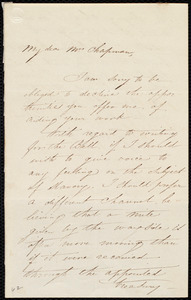 My dear Mrs Chapman,
I am sorry to be
obliged to decline the oppor
tunities you offer me, of
aiding your work.
With regard to writing
for the Bell, if I should
wish to give voice to
my feelings on the subject
of Slavery, I should prefer
a different channel, be
lieving that a note
given by the wayside is
often more moving than
if it were
through the appointed